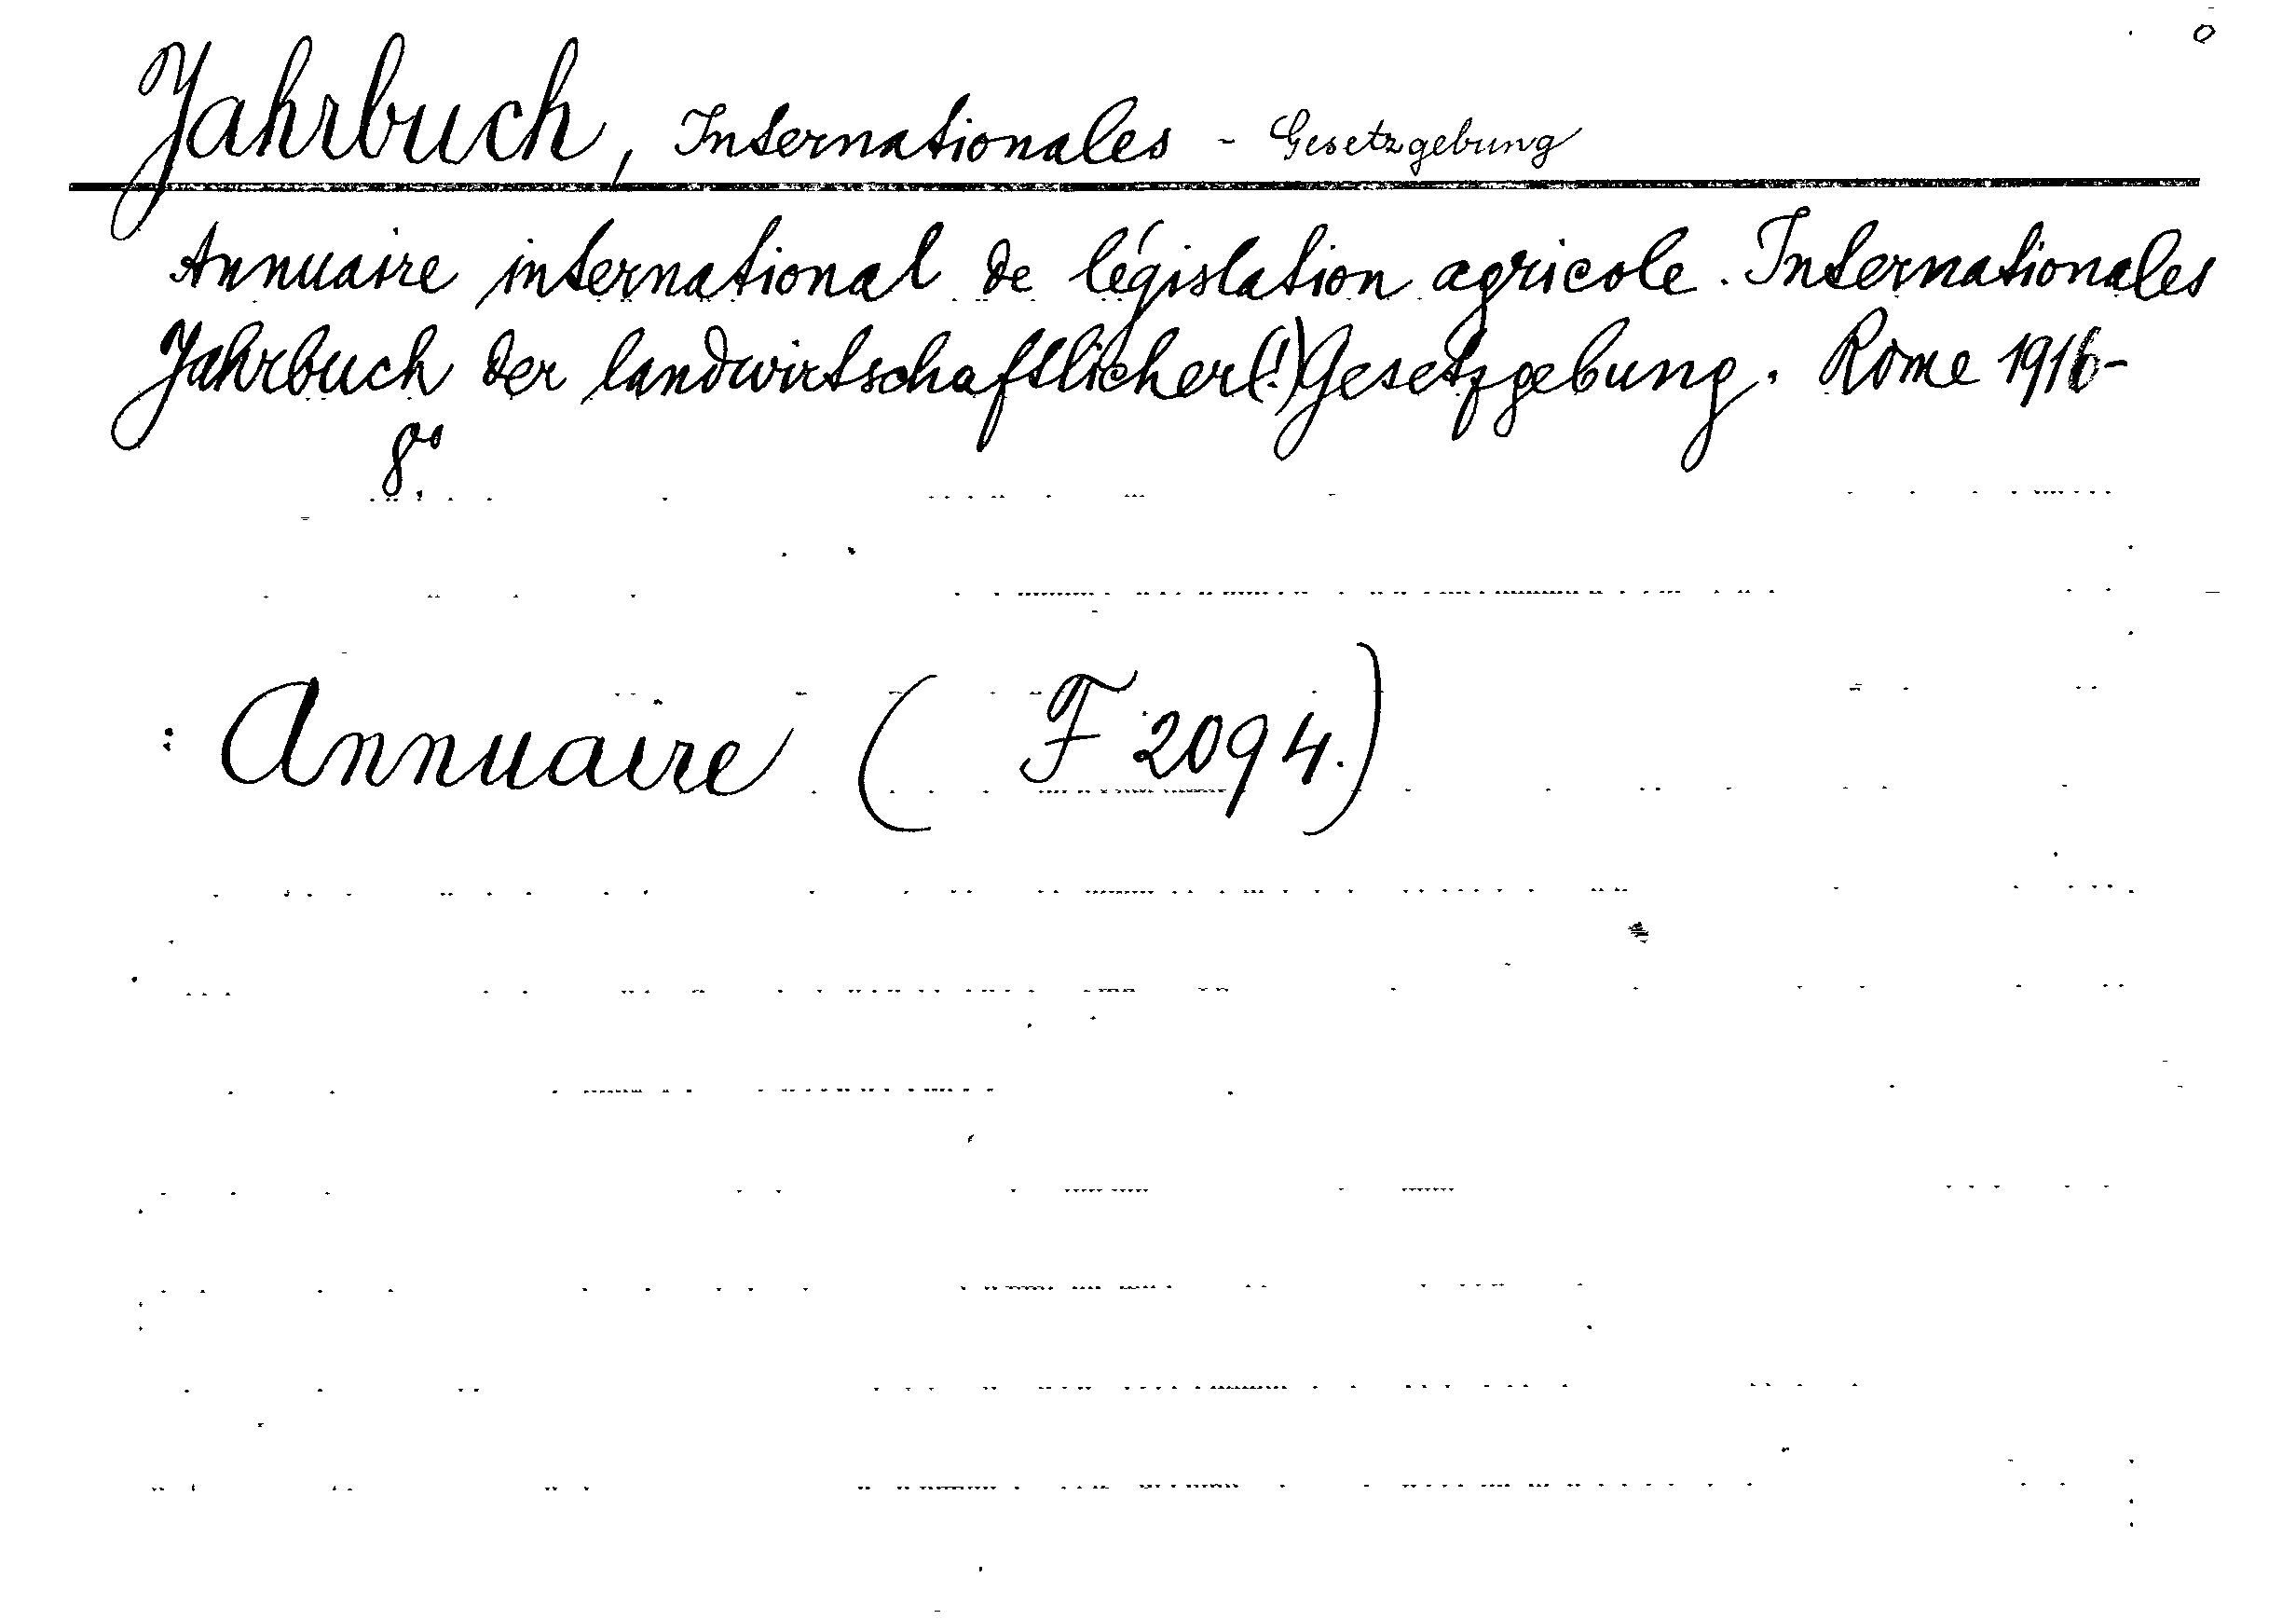 Jahrbuch, Internationales - Gesetzgebung
Annuaire international de législation agricole. Internationales
Jahrbuch der landwirtschaftlicher(!) Gesetzgebung. Rome 1916-
8°.
: Annuaire ( F 2094.)